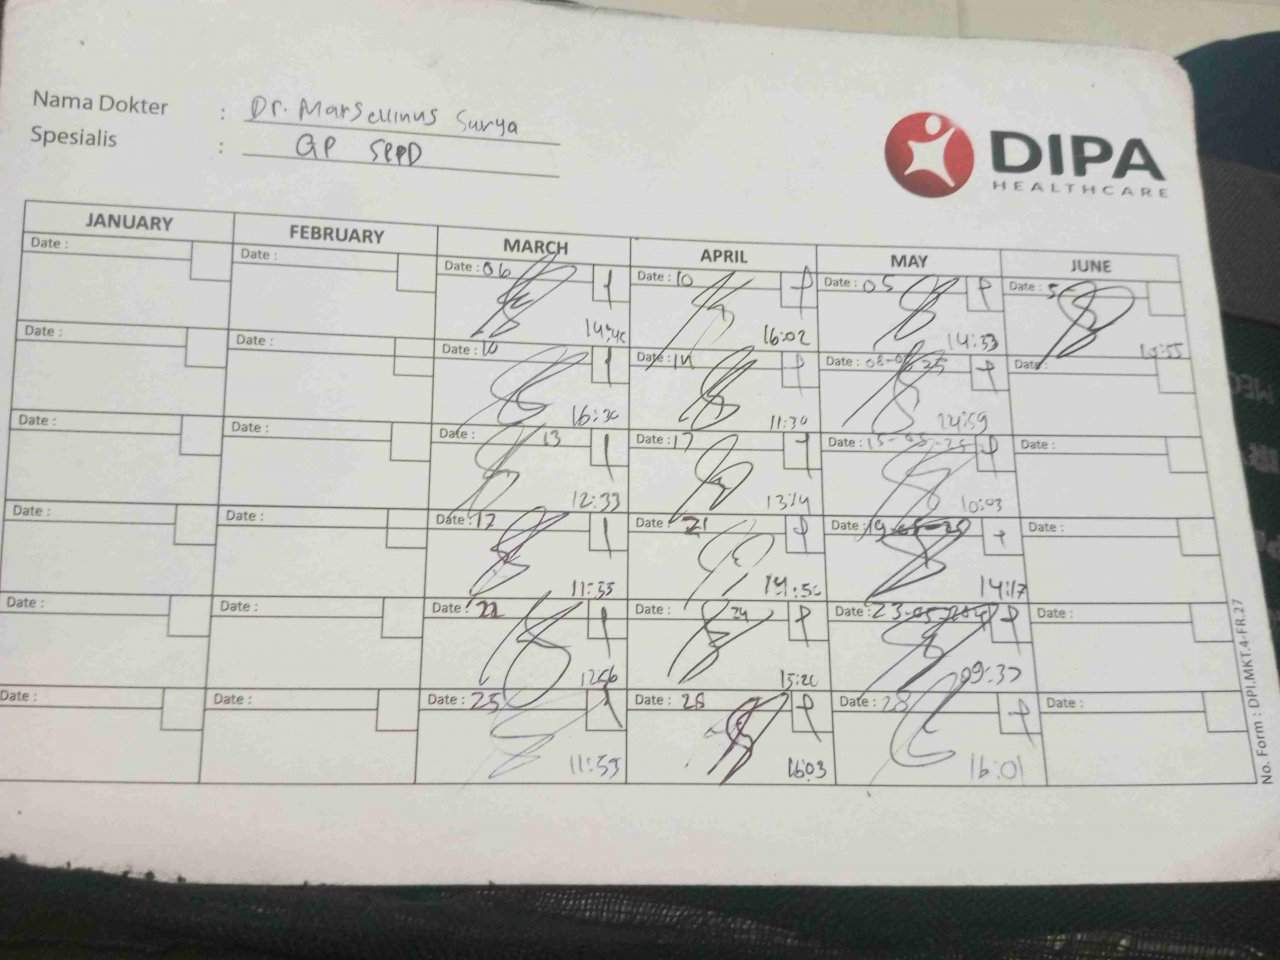 Nama Dokter : Dr. Marsellinus Surya
Spesialis : GP SPPD
DIPA
HEALTHCARE
JANUARY FEBRUARY MARCH APRIL MAY JUNE
Date : Date : Date : 06 Date : 10 Date : 05 Date : 5
14:40 16:02 14:33
Date : Date : Date : 10 Date : 14 Date : Date :
16:30 11:30 14:59
Date : Date : Date : 13 Date : 17 Date : 15-05-25
12:33 13:14 10:03
Date : Date : Date : 17 Date : 21 Date : 19-05-25 Date :
11:35 14:50 14:17
Date : Date : Date : 22 Date : 24 Date : 23-05- Date :
15:20 09:37
Date : Date : Date : 25 Date : 28 Date : 28 Date :
11:59 16:03 16:01
No. Form : DPI.MKT.4-FR.27